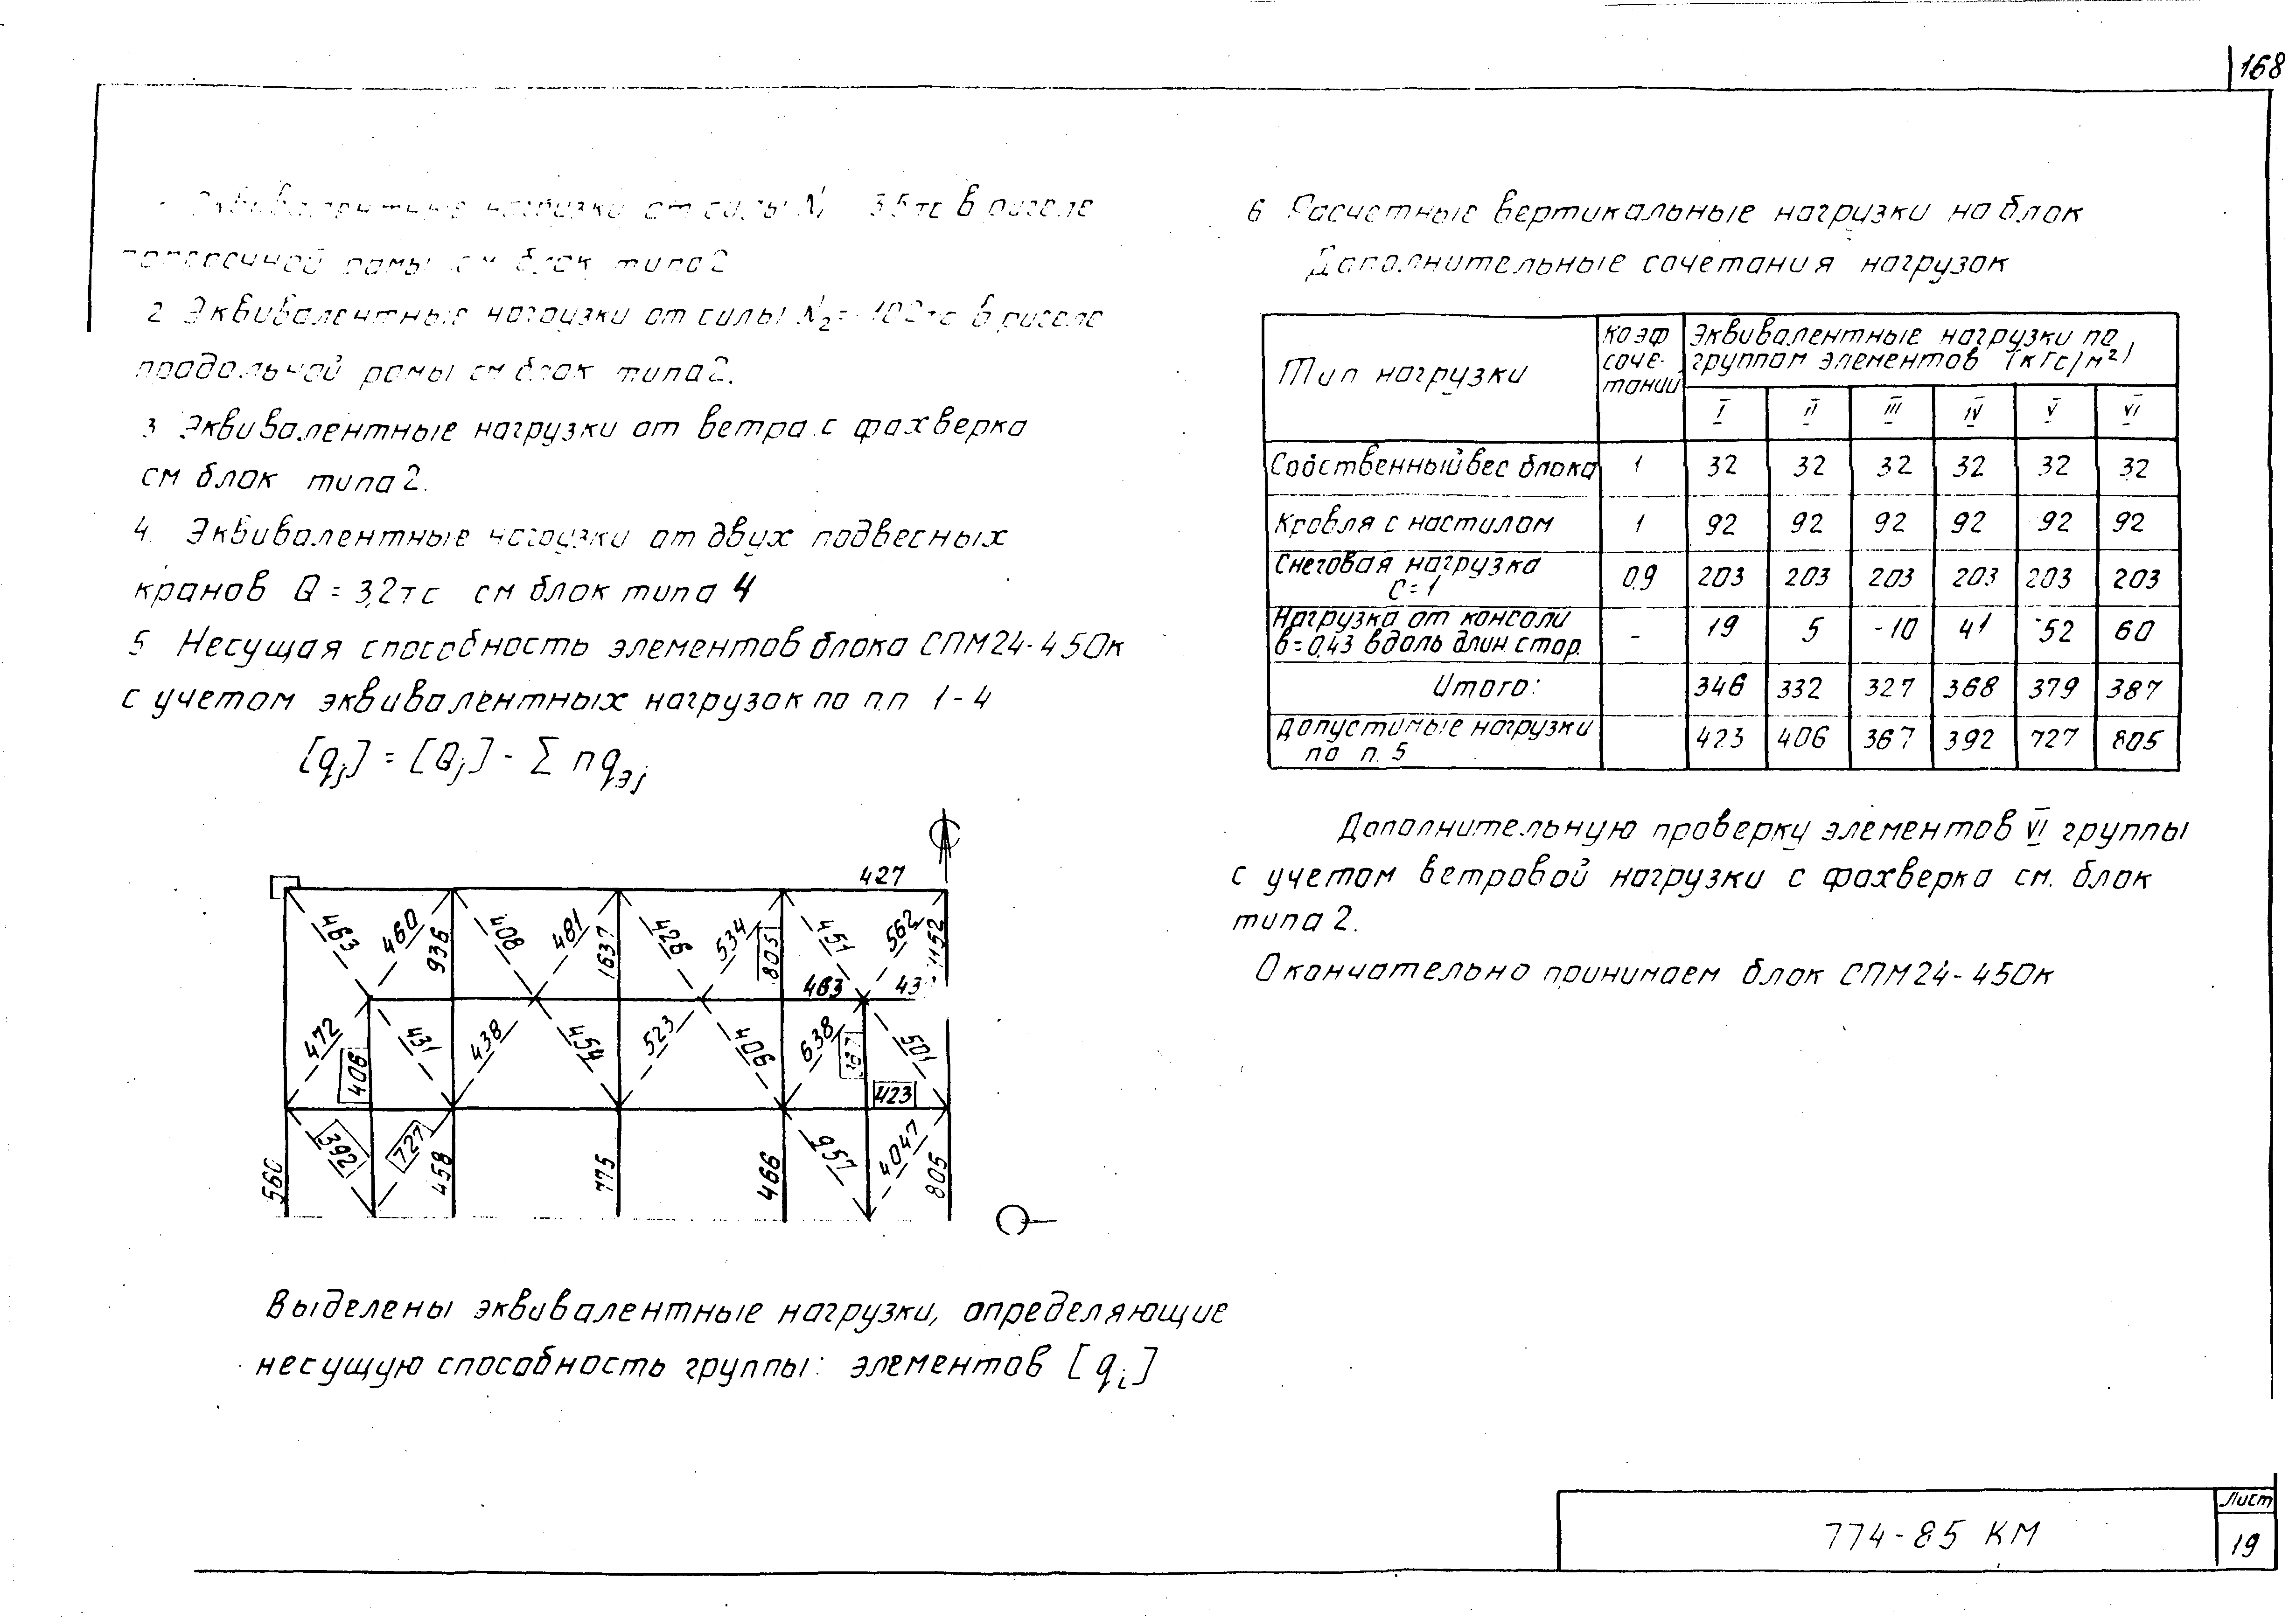 168
Эквивалентные нагрузки от силы N 35тс в ригеле
поперечной рамы см блок типа 2
2 Эквивалентные нагрузки от силы N₂=-102тс в ригеле
продольной рамы см блок типа 2.
3 Эквивалентные нагрузки от ветра с фахверка
см блок типа 2.
4. Эквивалентные нагрузки от двух подвесных
кранов Q = 3,2тс см. блок типа 4
5 Несущая способность элементов блока СПМ24-450к
с учетом эквивалентных нагрузок по п.п 1-4
[qj] = [Qj] - Σ nqэj
427
463 460 936 408 481 1637 426 534 805 451 562 1152
463 43
472 406 431 438 454 523 406 638 501
423
560 392 727 458 775 466 957 4047 805
Выделены эквивалентные нагрузки, определяющие
несущую способность группы: элементов [qi]
6 Расчетные вертикальные нагрузки на блок
Дополнительные сочетания нагрузок
Тип нагрузки
коэф
соче-
тании
Эквивалентные нагрузки по
группам элементов (кгс/м²)
I II III IV V VI
Собственный вес блока 1 32 32 32 32 32 32
Кровля с настилом 1 92 92 92 92 92 92
Снеговая нагрузка
с=1 0,9 203 203 203 203 203 203
Нагрузка от консоли
в=0,43 вдоль длин. стор. - 19 5 -10 41 52 60
Итого: 346 332 327 368 379 387
Допустимые нагрузки
по п. 5 423 406 367 392 727 805
Дополнительную проверку элементов VI группы
с учетом ветровой нагрузки с фахверка см. блок
типа 2.
Окончательно принимаем блок СПМ24-450к
774-85 КМ
Лист
19